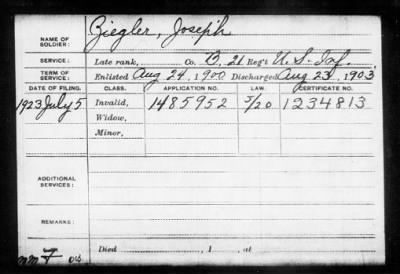 NAME OF SOLDIER: Ziegler, Joseph
SERVICE: Late rank, Co. B, 21 Reg't U. S. Inf.
TERM OF SERVICE: Enlisted Aug 24, 1900 Discharged Aug 23, 1903
DATE OF FILING. CLASS. APPLICATION NO. LAW. CERTIFICATE NO.
1923 July 5 Invalid, 1485952 5/20 1234813
Widow,
Minor,
ADDITIONAL SERVICES:
REMARKS:
Died , 1 , at